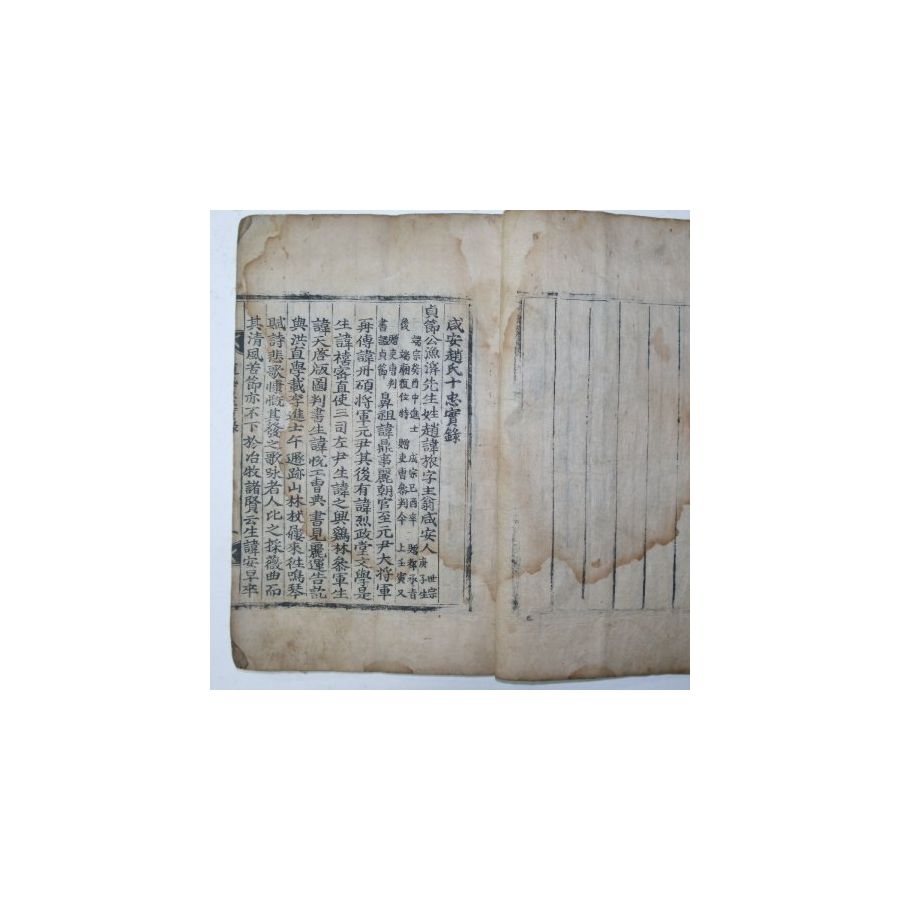 咸安趙氏十忠實錄
貞節公漁溪先生姓趙諱旅字主翁咸安人世宗庚子生
端宗癸酉中進士 成宗己酉卒 贈都承旨
後 端廟復位特 贈吏曹參判今 上壬寅又
贈吏曹判書諡貞節 鼻祖諱鼎事麗朝官至元尹大將軍
再傳諱丹碩將軍元尹其後有諱烈政堂文學是
生諱禧密直使三司左尹生諱之興鷄林參軍生
諱天啓版圖判書生諱悅工曹典書見麗運告訖
與洪直學載李進士午遯跡山林杖屨來徃鳴琴
賦詩悲歌慷慨其發之歌咏者人比之採薇曲而
其清風苦節亦不下於冶牧諸賢云生諱安早卒